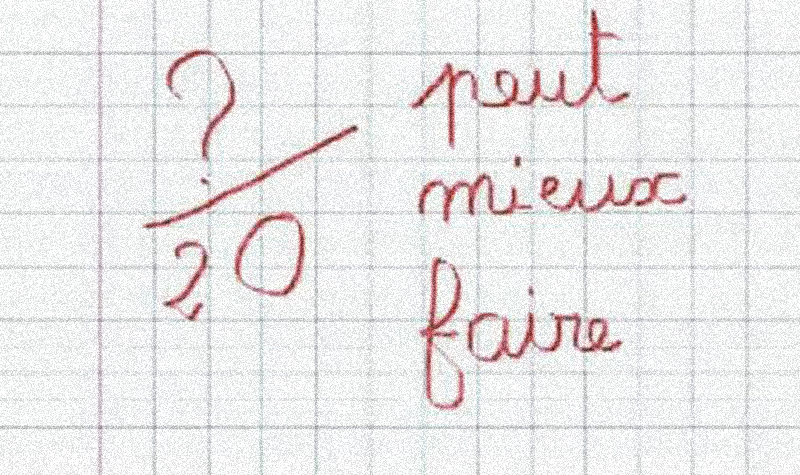 ?/20
peut
mieux
faire